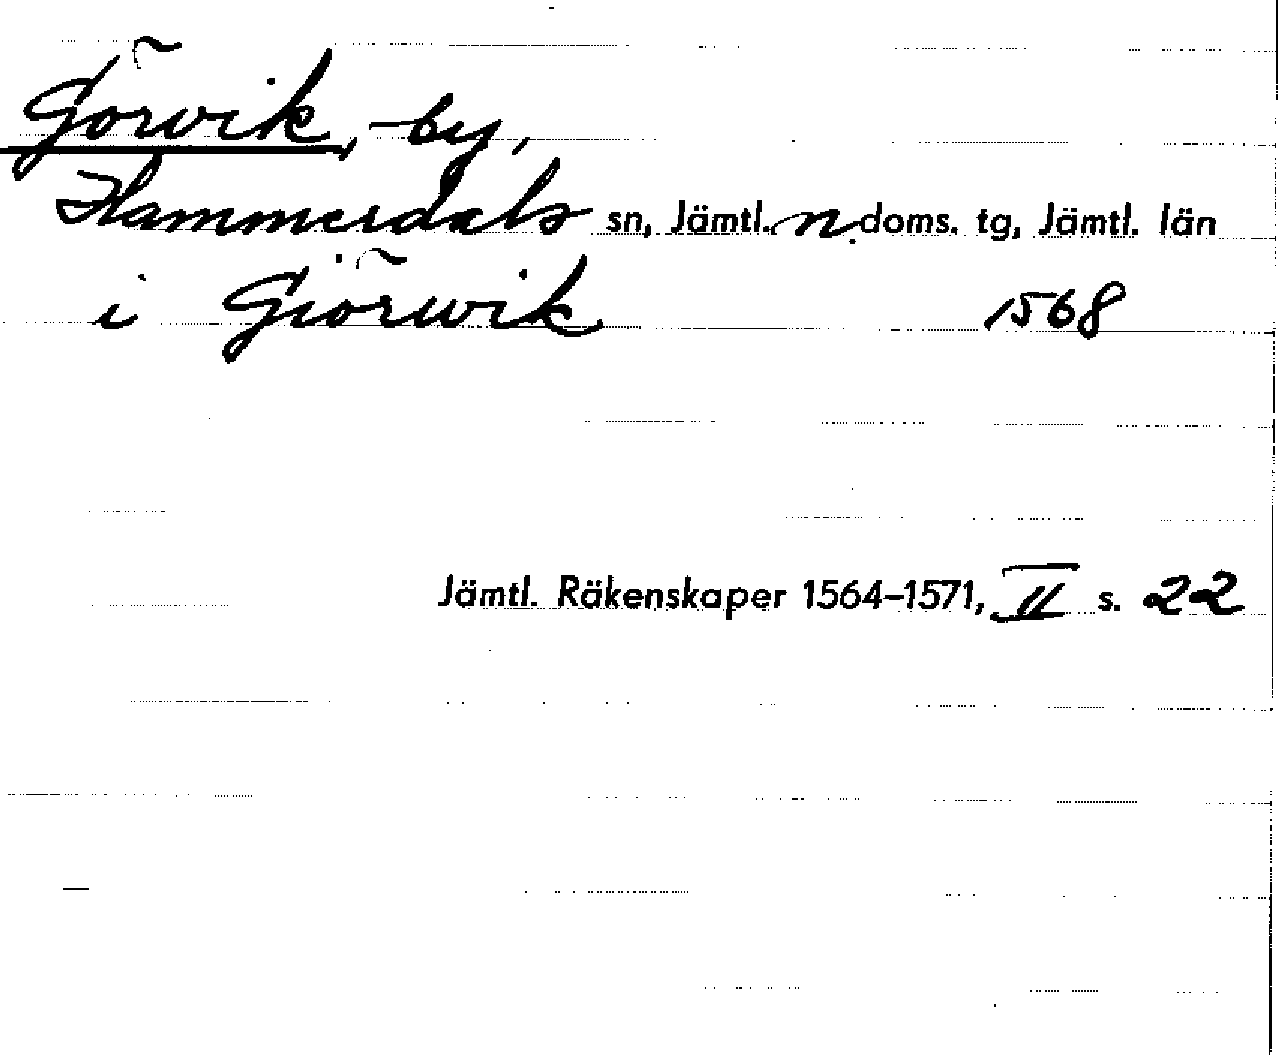 Görvik, by,
Hammerdals sn, Jämtl. n. doms. tg, Jämtl. län
i Giörwik 1568
Jämtl. Räkenskaper 1564–1571, II s. 22